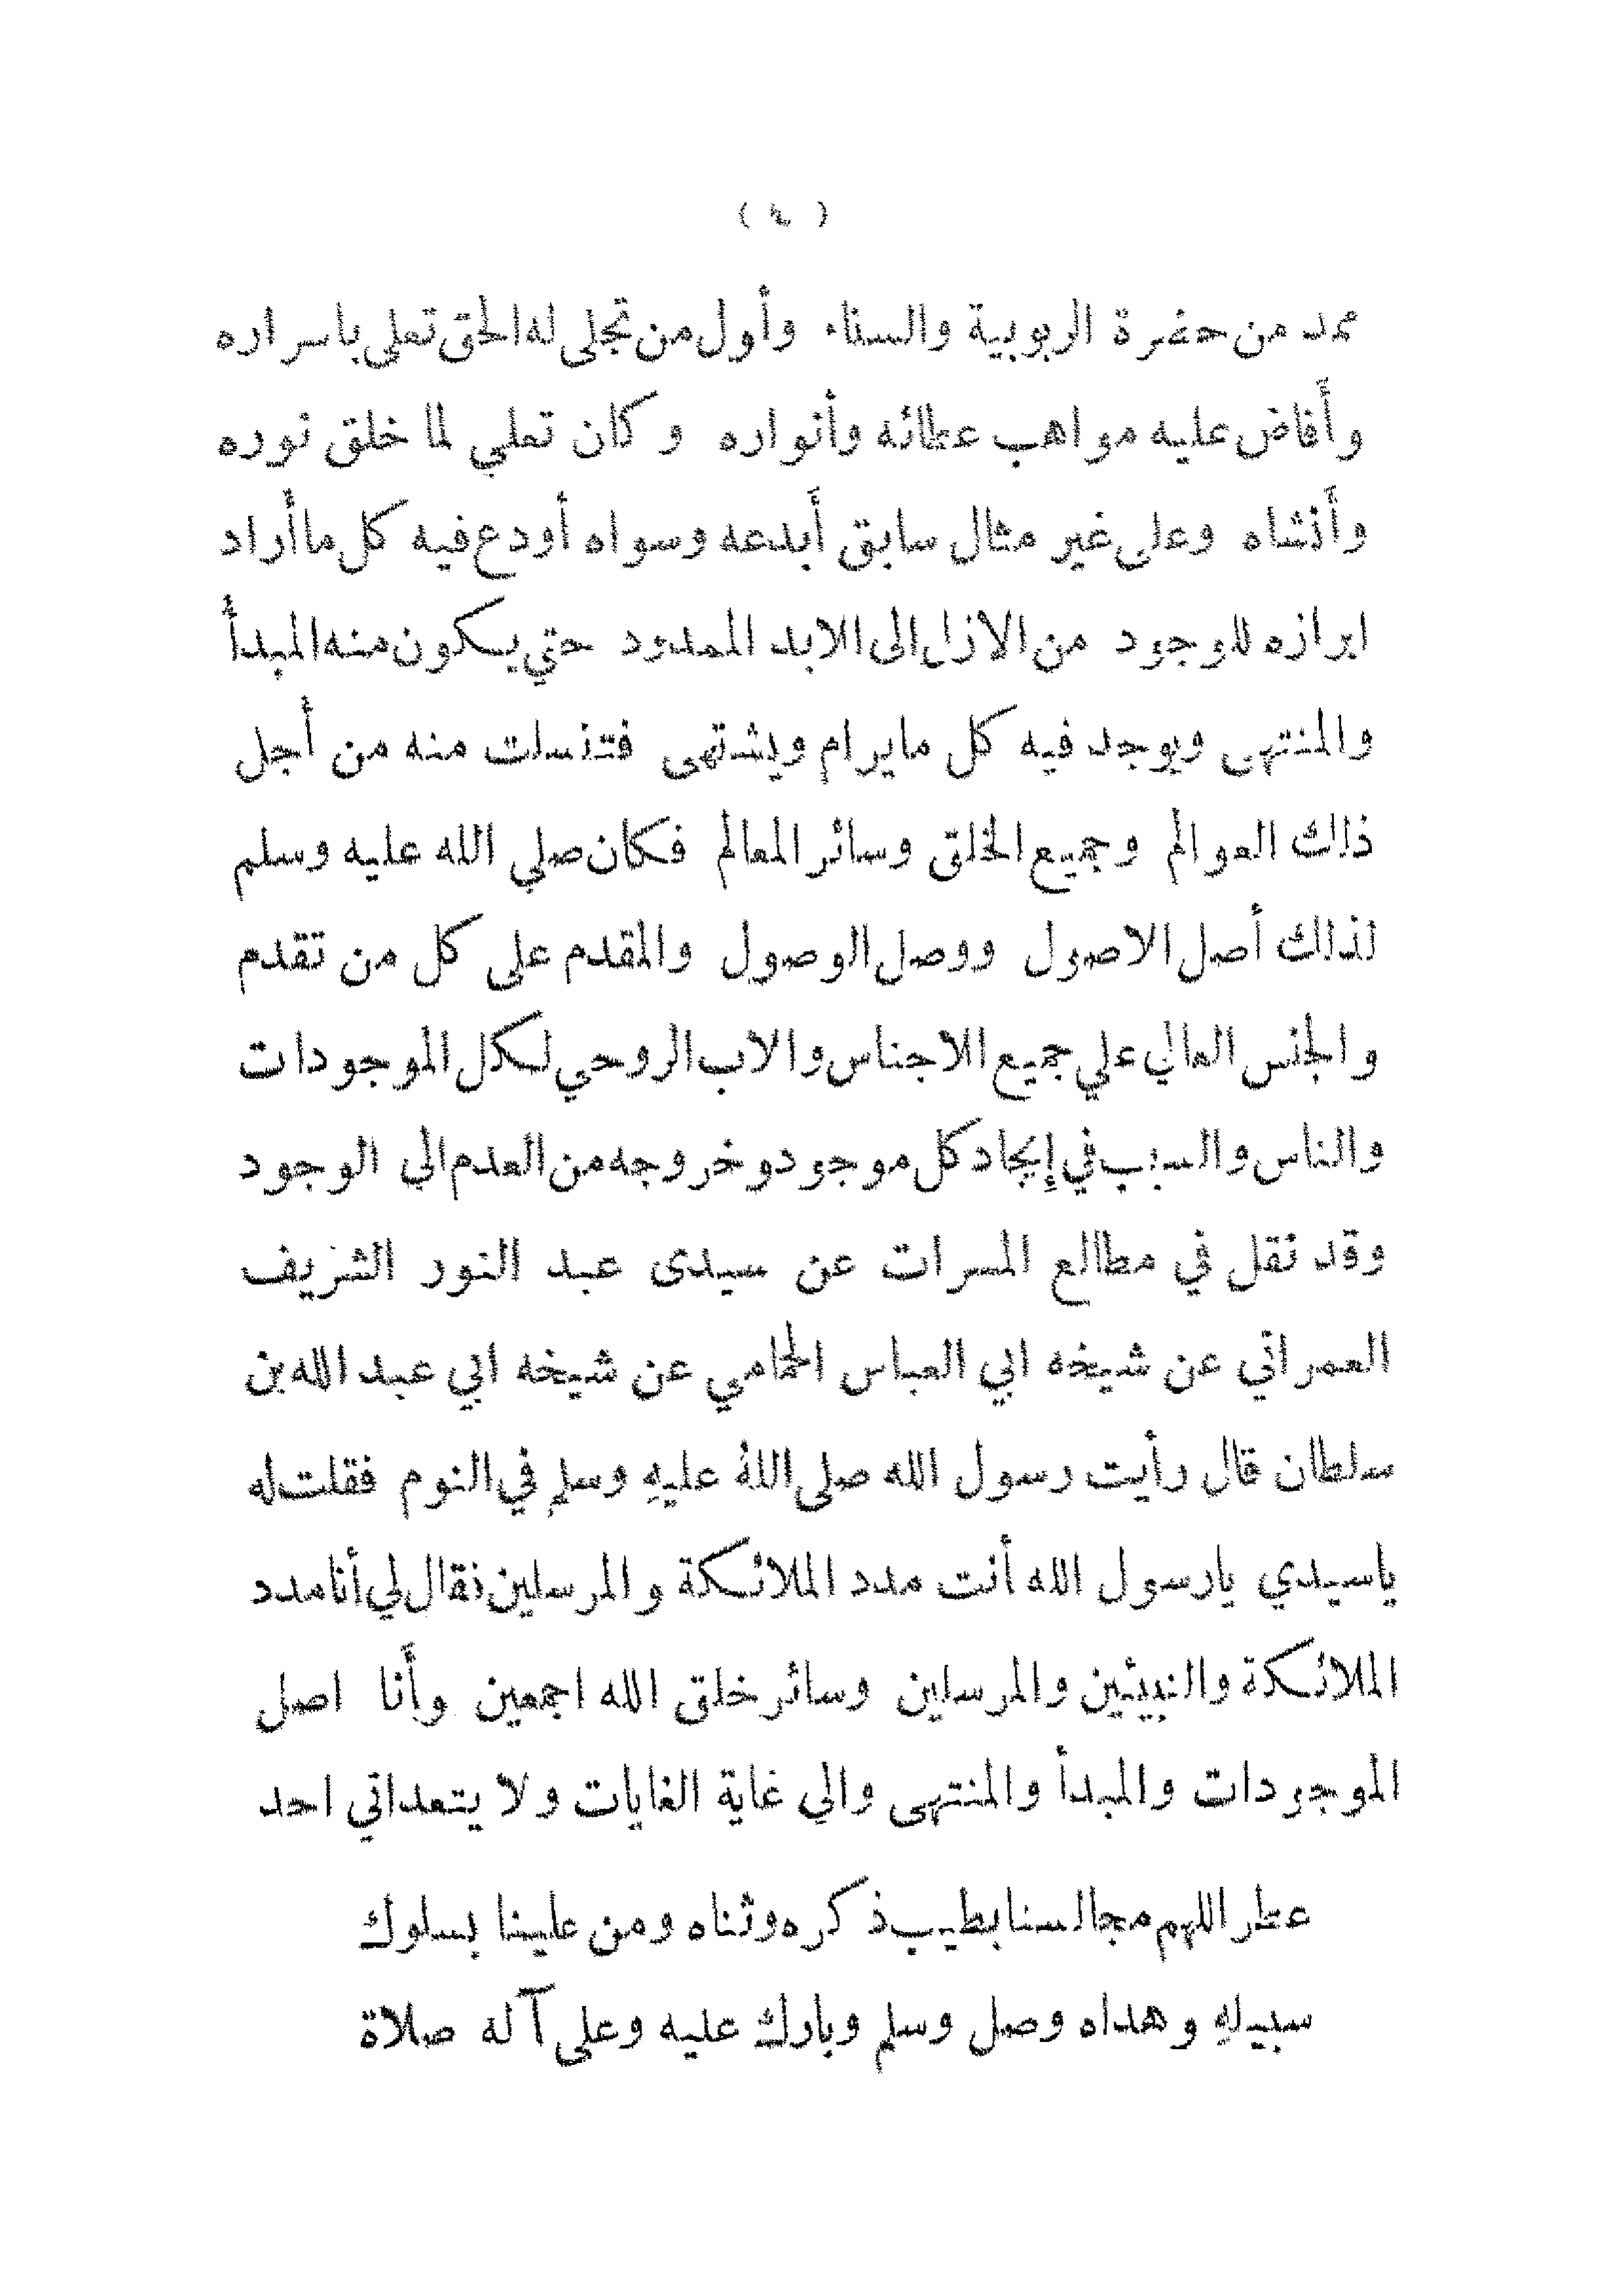 ( ٤ )
ممد من حضرة الربوبية والسناء وأول من تجلى له الحق تعلى باسراره
وأفاض عليه مواهب عطائه وأنواره وكان تعلي لما خلق نوره
وأنشاه وعلى غير مثال سابق أبدعه وسواه أودع فيه كل ما أراد
ابرازه للوجود من الازل الى الابد الممدود حتي يكون منه المبدأ
والمنتهى ويوجد فيه كل مايرام ويشتهى فتنسلت منه من أجل
ذلك العوالم وجميع الخلق وسائر المعالم فكان صلي الله عليه وسلم
لذلك أصل الاصول ووصل الوصول والمقدم على كل من تقدم
والجنس العالي علي جميع الاجناس والاب الروحي لكل الموجودات
والناس والسبب في إيجاد كل موجود وخروجه من العدم الي الوجود
وقد نقل في مطالع المسرات عن سيدى عبد النور الشريف
العمراني عن شيخه ابي العباس الحمامي عن شيخه ابي عبد الله بن
سلطان قال رأيت رسول الله صلى اللهُ عليهِ وسلم في النوم فقلت له
ياسيدي يارسول الله أنت مدد الملائكة والمرسلين فقال لي أنا مدد
الملائكة والنبيئين والمرسلين وسائر خلق الله اجمعين وأنا اصل
الموجودات والمبدأ والمنتهى والي غاية الغايات ولا يتعداني احد
عطر اللهم مجالسنا بطيب ذكره وثناه ومن علينا بسلوك
سبيلهِ وهداه وصل وسلم وبارك عليه وعلى آله صلاة